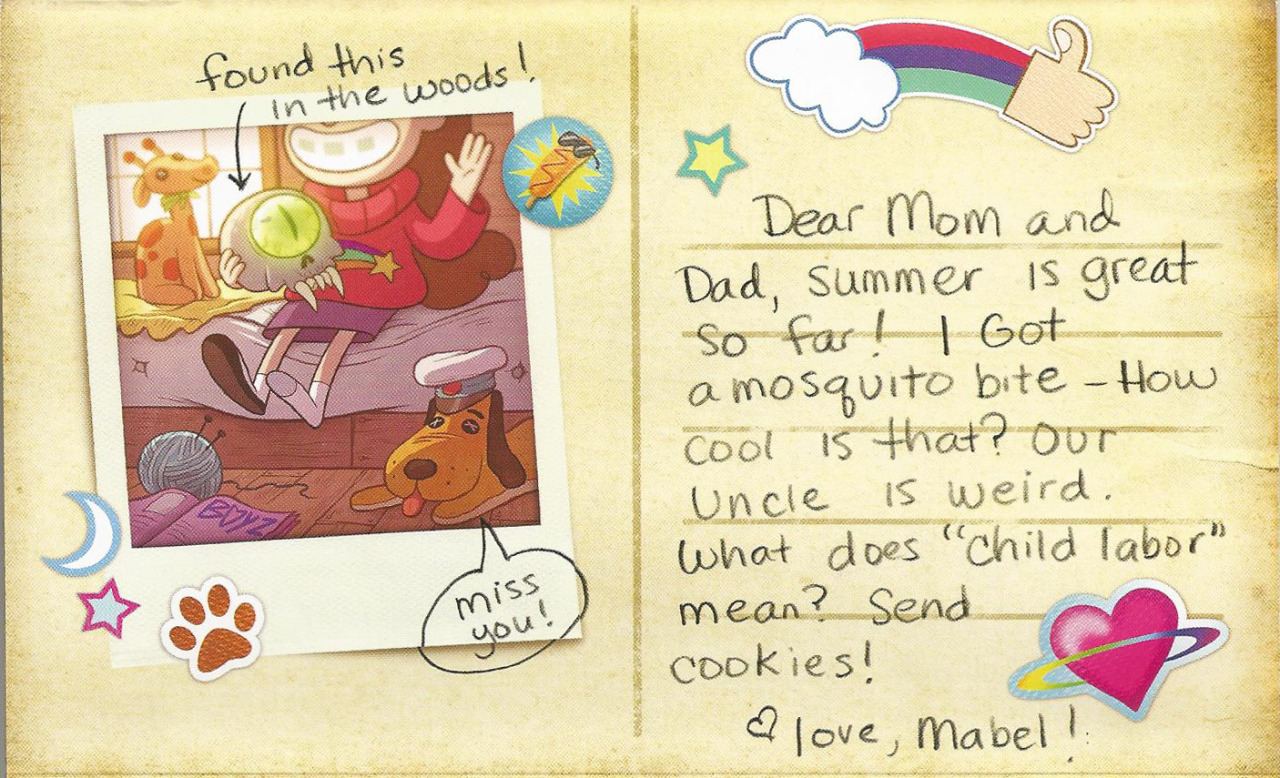 found this
in the woods!
BOYZ
miss
you!
Dear Mom and
Dad, summer is great
so far! I Got
a mosquito bite – How
cool is that? Our
Uncle is weird.
What does "child labor"
mean? Send
cookies!
♡ love, Mabel!